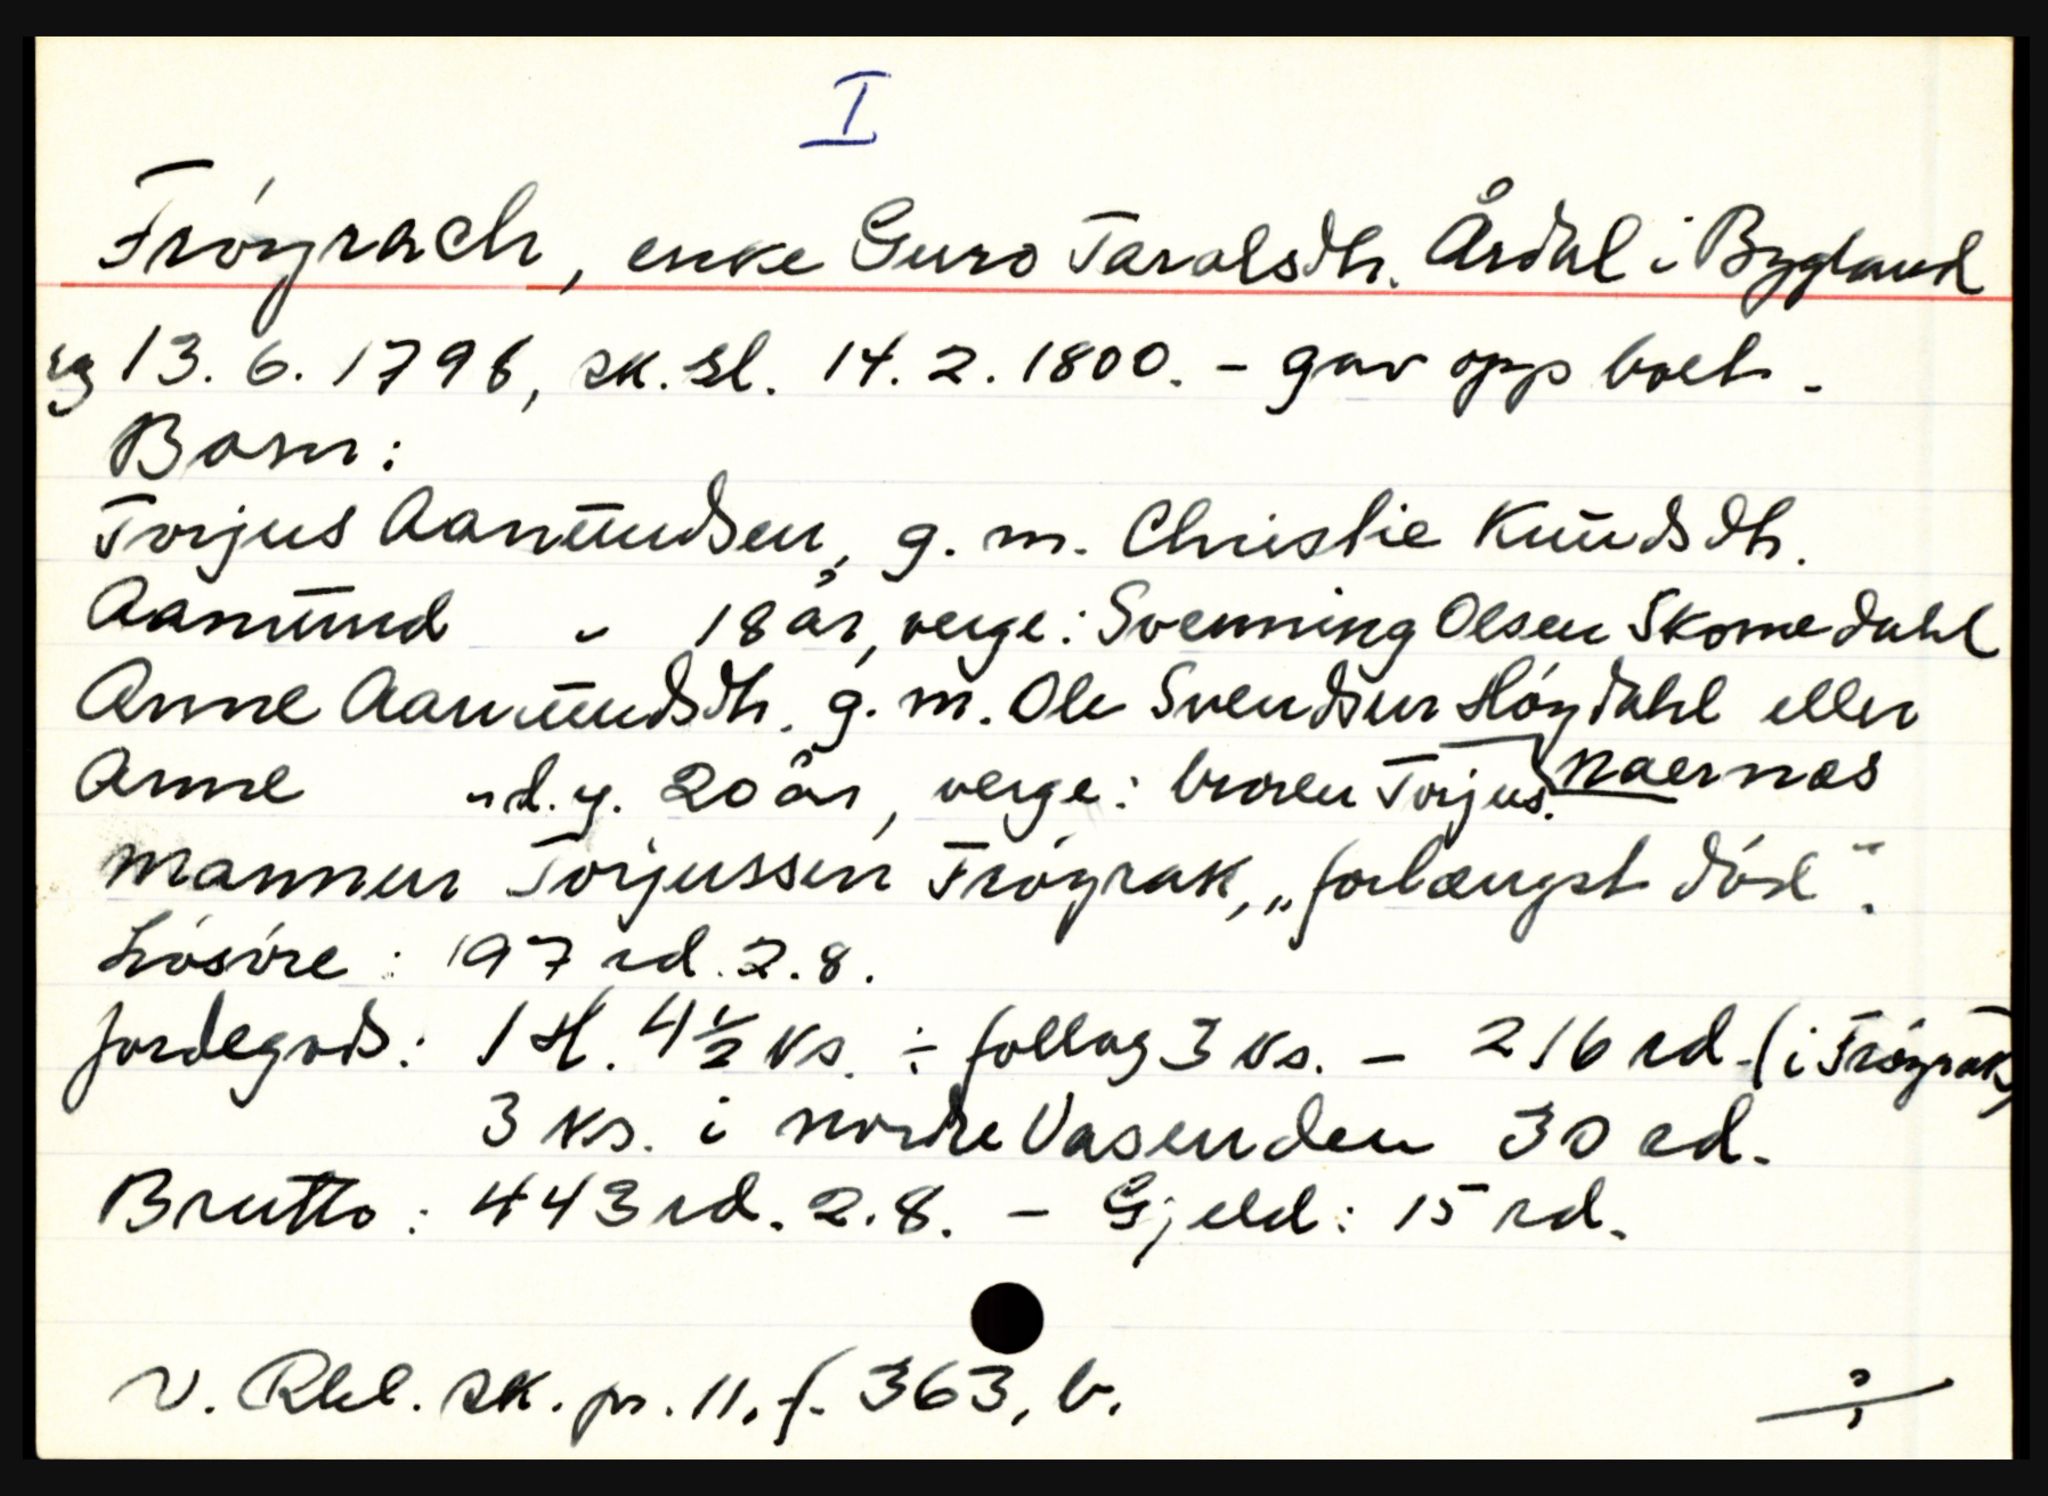 I
Frøyrach, enke Guro Taralsdtr. Årdal i Bygland
rg 13.6.1798, sk.sl. 14.2.1800. - gav opp boet.
Born:
Torjus Aanundsen, g.m. Christie Knudsdtr.
Aanund " 18 år, verge: Svenning Olsen Skomedahl
Anne Aanundsdtr. g.m. Ole Svendsen Høydahl eller
Anne " d.y. 20 år, verge: broren Torjus. Naernæs
Mannen Torjussen Frøyrak, „forlængst død".
Løsøre: 197 rd. 2.8.
Jordegods: 1 H. 4½ ks. ÷ follog 3 ks. - 216 rd. (i Frøyrak)
3 ks. i nordre Vasenden 30 rd.
Brutto: 443 rd. 2.8. - Gjeld: 15 rd.
V. Rbl. sk. pr. 11. f. 363, b.
÷